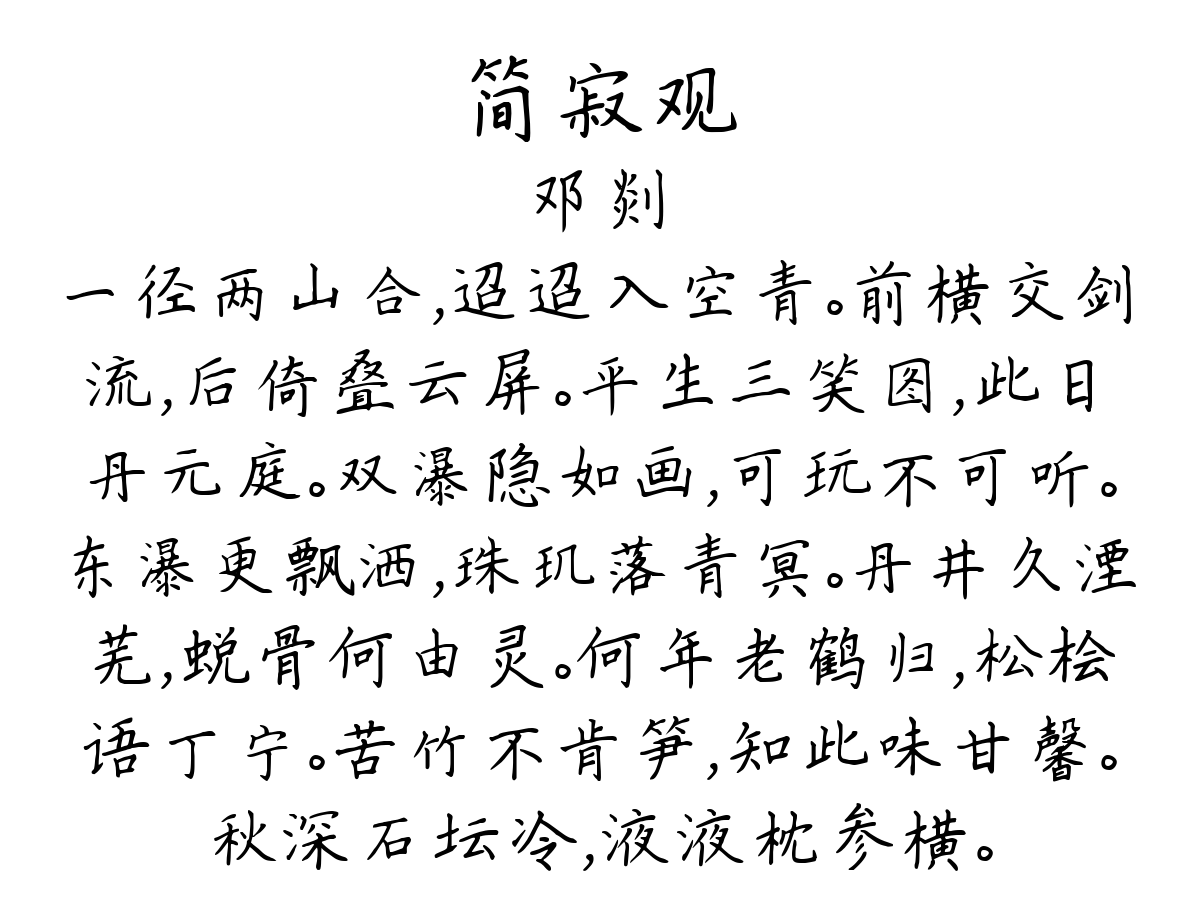 简寂观
邓剡
一径两山合,迢迢入空青。前横交剑
流,后倚叠云屏。平生三笑图,此日
丹元庭。双瀑隐如画,可玩不可听。
东瀑更飘洒,珠玑落青冥。丹井久湮
芜,蜕骨何由灵。何年老鹤归,松桧
语丁宁。苦竹不肯笋,知此味甘馨。
秋深石坛冷,液液枕参横。